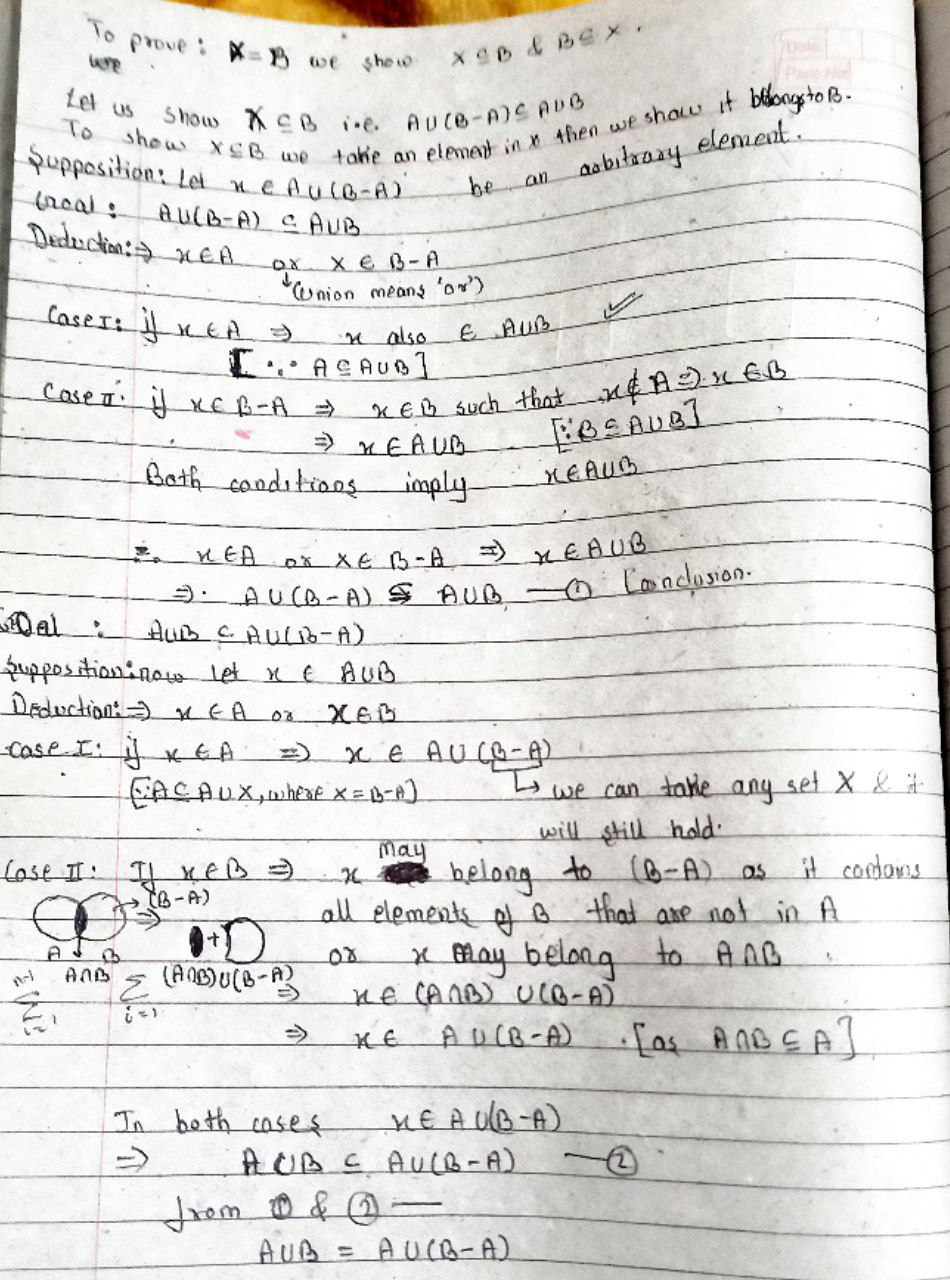 To prove: X=B we show X⊆B & B⊆X.
we
Date
Page No
Let us show X⊆B i.e. A∪(B-A)⊆A∪B
To show X⊆B we take an element in x then we show it belongs to B.
Supposition: Let x∈A∪(B-A) be an arbitrary element.
Goal: A∪(B-A) ⊆ A∪B
Deduction:⇒ x∈A or x∈B-A
↓(Union means 'or')
Case I: if x∈A ⇒ x also ∈ A∪B ✓
[∵ A⊆A∪B]
Case II: if x∈B-A ⇒ x∈B such that x∉A⇒x∈B
⇒ x∈A∪B [∵B⊆A∪B]
Both conditions imply x∈A∪B
∴ x∈A or x∈B-A ⇒ x∈A∪B
⇒. A∪(B-A) ⊆ A∪B —① Conclusion.
Goal : A∪B ⊆ A∪(B-A)
Supposition: now let x ∈ A∪B
Deduction:⇒ x∈A or x∈B
case I: if x∈A ⇒ x ∈ A∪(B-A)
[∵A⊆A∪X, where X=B-A] ↳ we can take any set X & it
will still hold.
Case II: If x∈B ⇒ x may belong to (B-A) as it contains
→(B-A) ⇒ all elements of B that are not in A
A B + or x may belong to A∩B.
A∩B (A∩B)∪(B-A)
n-1 ∑ i=1 ∑ i=1 ⇒ x∈(A∩B)∪(B-A)
⇒ x∈ A∪(B-A) .[as A∩B⊆A]
In both cases x∈A∪(B-A)
⇒ A∪B ⊆ A∪(B-A) —②
from ① & ② —
A∪B = A∪(B-A)